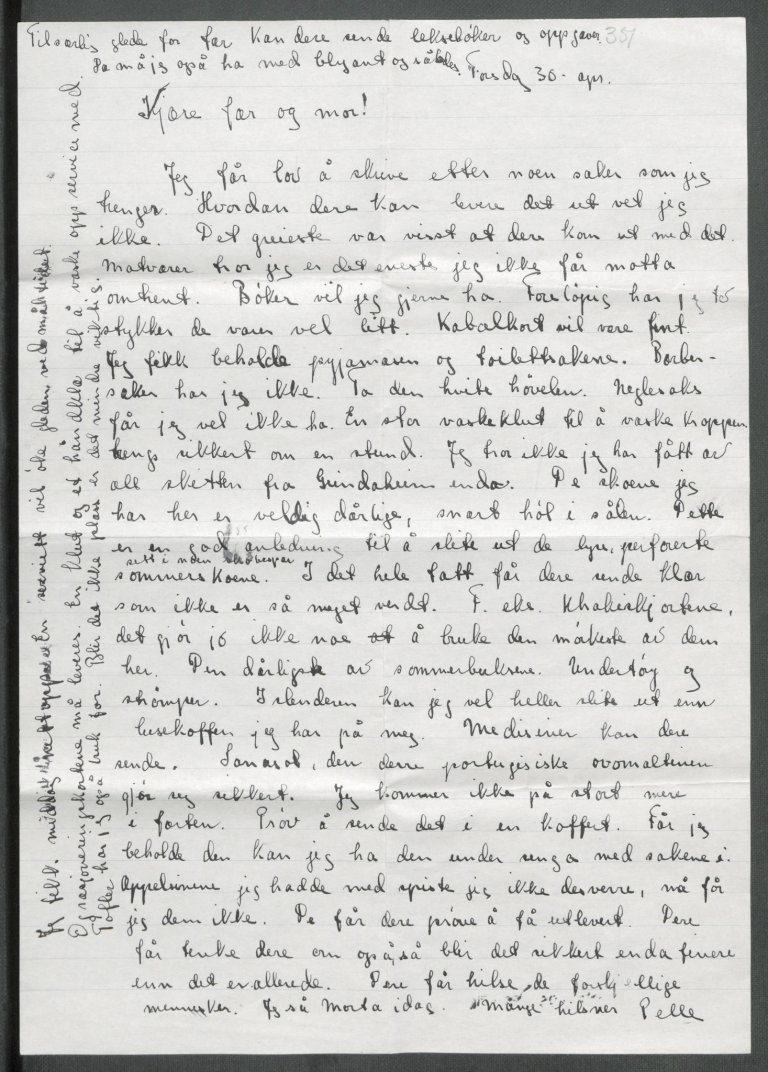 Til særlig glede for far kan dere sende leksebøker og oppgaver. 351
Da må jeg også ha med blyant og således. Torsdag 30. apr.
Kjære far og mor!
Jeg får lov å skrive etter noen saker som jeg
trenger. Hvordan dere kan levere det ut vet jeg
ikke. Det greieste var visst at dere kom ut med det.
Matvarer tror jeg er det eneste jeg ikke får motta
omtrent. Bøker vil jeg gjerne ha. Foreløpig har jeg to
stykker de varer vel litt. Kabalkort vil være fint.
Jeg fikk beholde pyjamasen og toilettsakene. Barber-
saker har jeg ikke. Ta den hvite høvelen. Neglesaks
får jeg vel ikke ha. En stor vaskeklut til å vaske kroppen
trengs sikkert om en stund. Jeg tror ikke jeg har fått av
all sketten fra Grindaheim enda. De skoene jeg
har her er veldig dårlige, snart hól i sålen. Dette
er en god anledning til å slite ut de lyse, perforerte
sett i noen skobesper
sommerskoene. I det hele tatt får dere sende klær
som ikke er så meget verdt. F. eks. khakiskjortene,
det gjør jo ikke noe å bruke den mørkeste av dem
her. Den dårligste av sommerbuksene. Undertøy og
strømper. Islenderen kan jeg vel heller slite ut enn
lusekoften jeg har på meg. Medisiner kan dere
sende. Sanasol, den derre portugisiske ovomaltinen
gjør seg sikkert. Jeg kommer ikke på stort mere
i farten. Prøv å sende det i en koffert. Får jeg
beholde den kan jeg ha den under senga med sakene i.
Appelsinene jeg hadde med spiste jeg ikke desverre, nå får
jeg dem ikke. De får dere prøve å få utlevert. Dere
får tenke dere om også, så blir det sikkert enda finere
enn det er allerede. Dere får hilse de forskjellige
mennesker. Jeg så Morta idag. Mange hilsner Pelle
Jeg fikk middag i en serviett vil øke gleden ved måltidet.
Og rasjoneringskortene må leveres. En klut og et håndkle til å vaske opp servise med
Tøfler har jeg også bruk for. Blir det ikke plass er det mindre viktig.